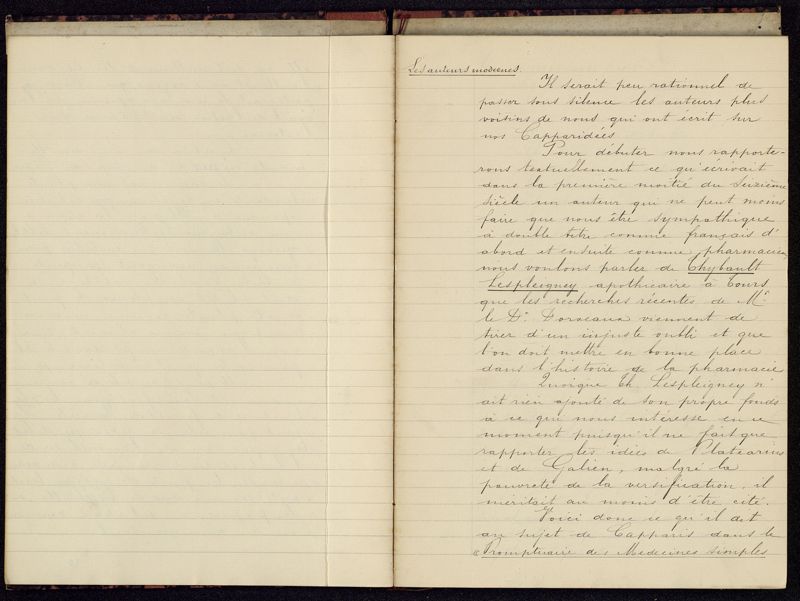 Les auteurs modernes.
Il serait peu rationnel de
passer sous silence les auteurs plus
voisins de nous qui ont écrit sur
nos Capparidées
Pour débuter nous rapporte-
rons textuellement ce qu'écrivait
dans la première moitié du Seizième
siècle un auteur qui ne peut moins
faire que nous être sympathique
à double titre comme français d'
abord et ensuite comme pharmacien
nous voulons parler de Thybault
Lespleigney apothicaire à Tours
que les recherches récentes de Mr
le Dr Dorveaux viennent de
tirer d'un injuste oubli et que
l'on doit mettre en bonne place
dans l'histoire de la pharmacie
Quoique Th. Lespleigney n'
ait rien ajouté de son propre fonds
à ce qui nous intéresse en ce
moment puisqu'il ne fait que
rapporter les idées de Platearius
et de Galien, malgré la
pauvreté de la versification, il
méritait au moins d'être cité.
Voici donc ce qu'il dit
au sujet de Capparis dans le
« Promptuaire des Medecines simples